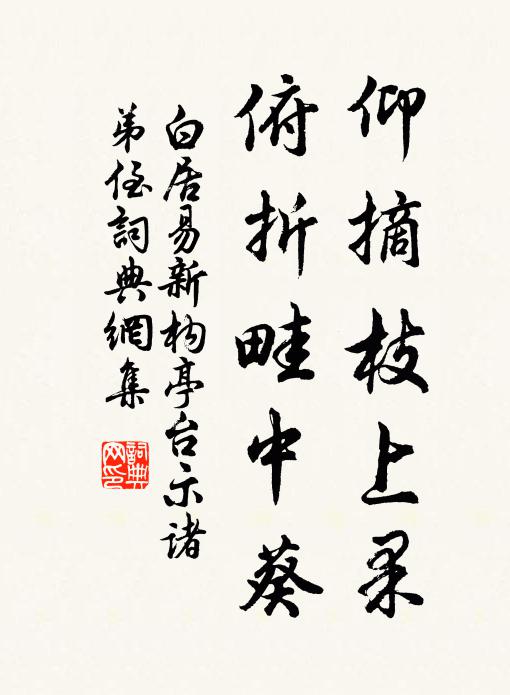 仰摘枝上果
俯折畦中葵
白居易新构亭台示诸
弟侄詞典網集
詞典網印